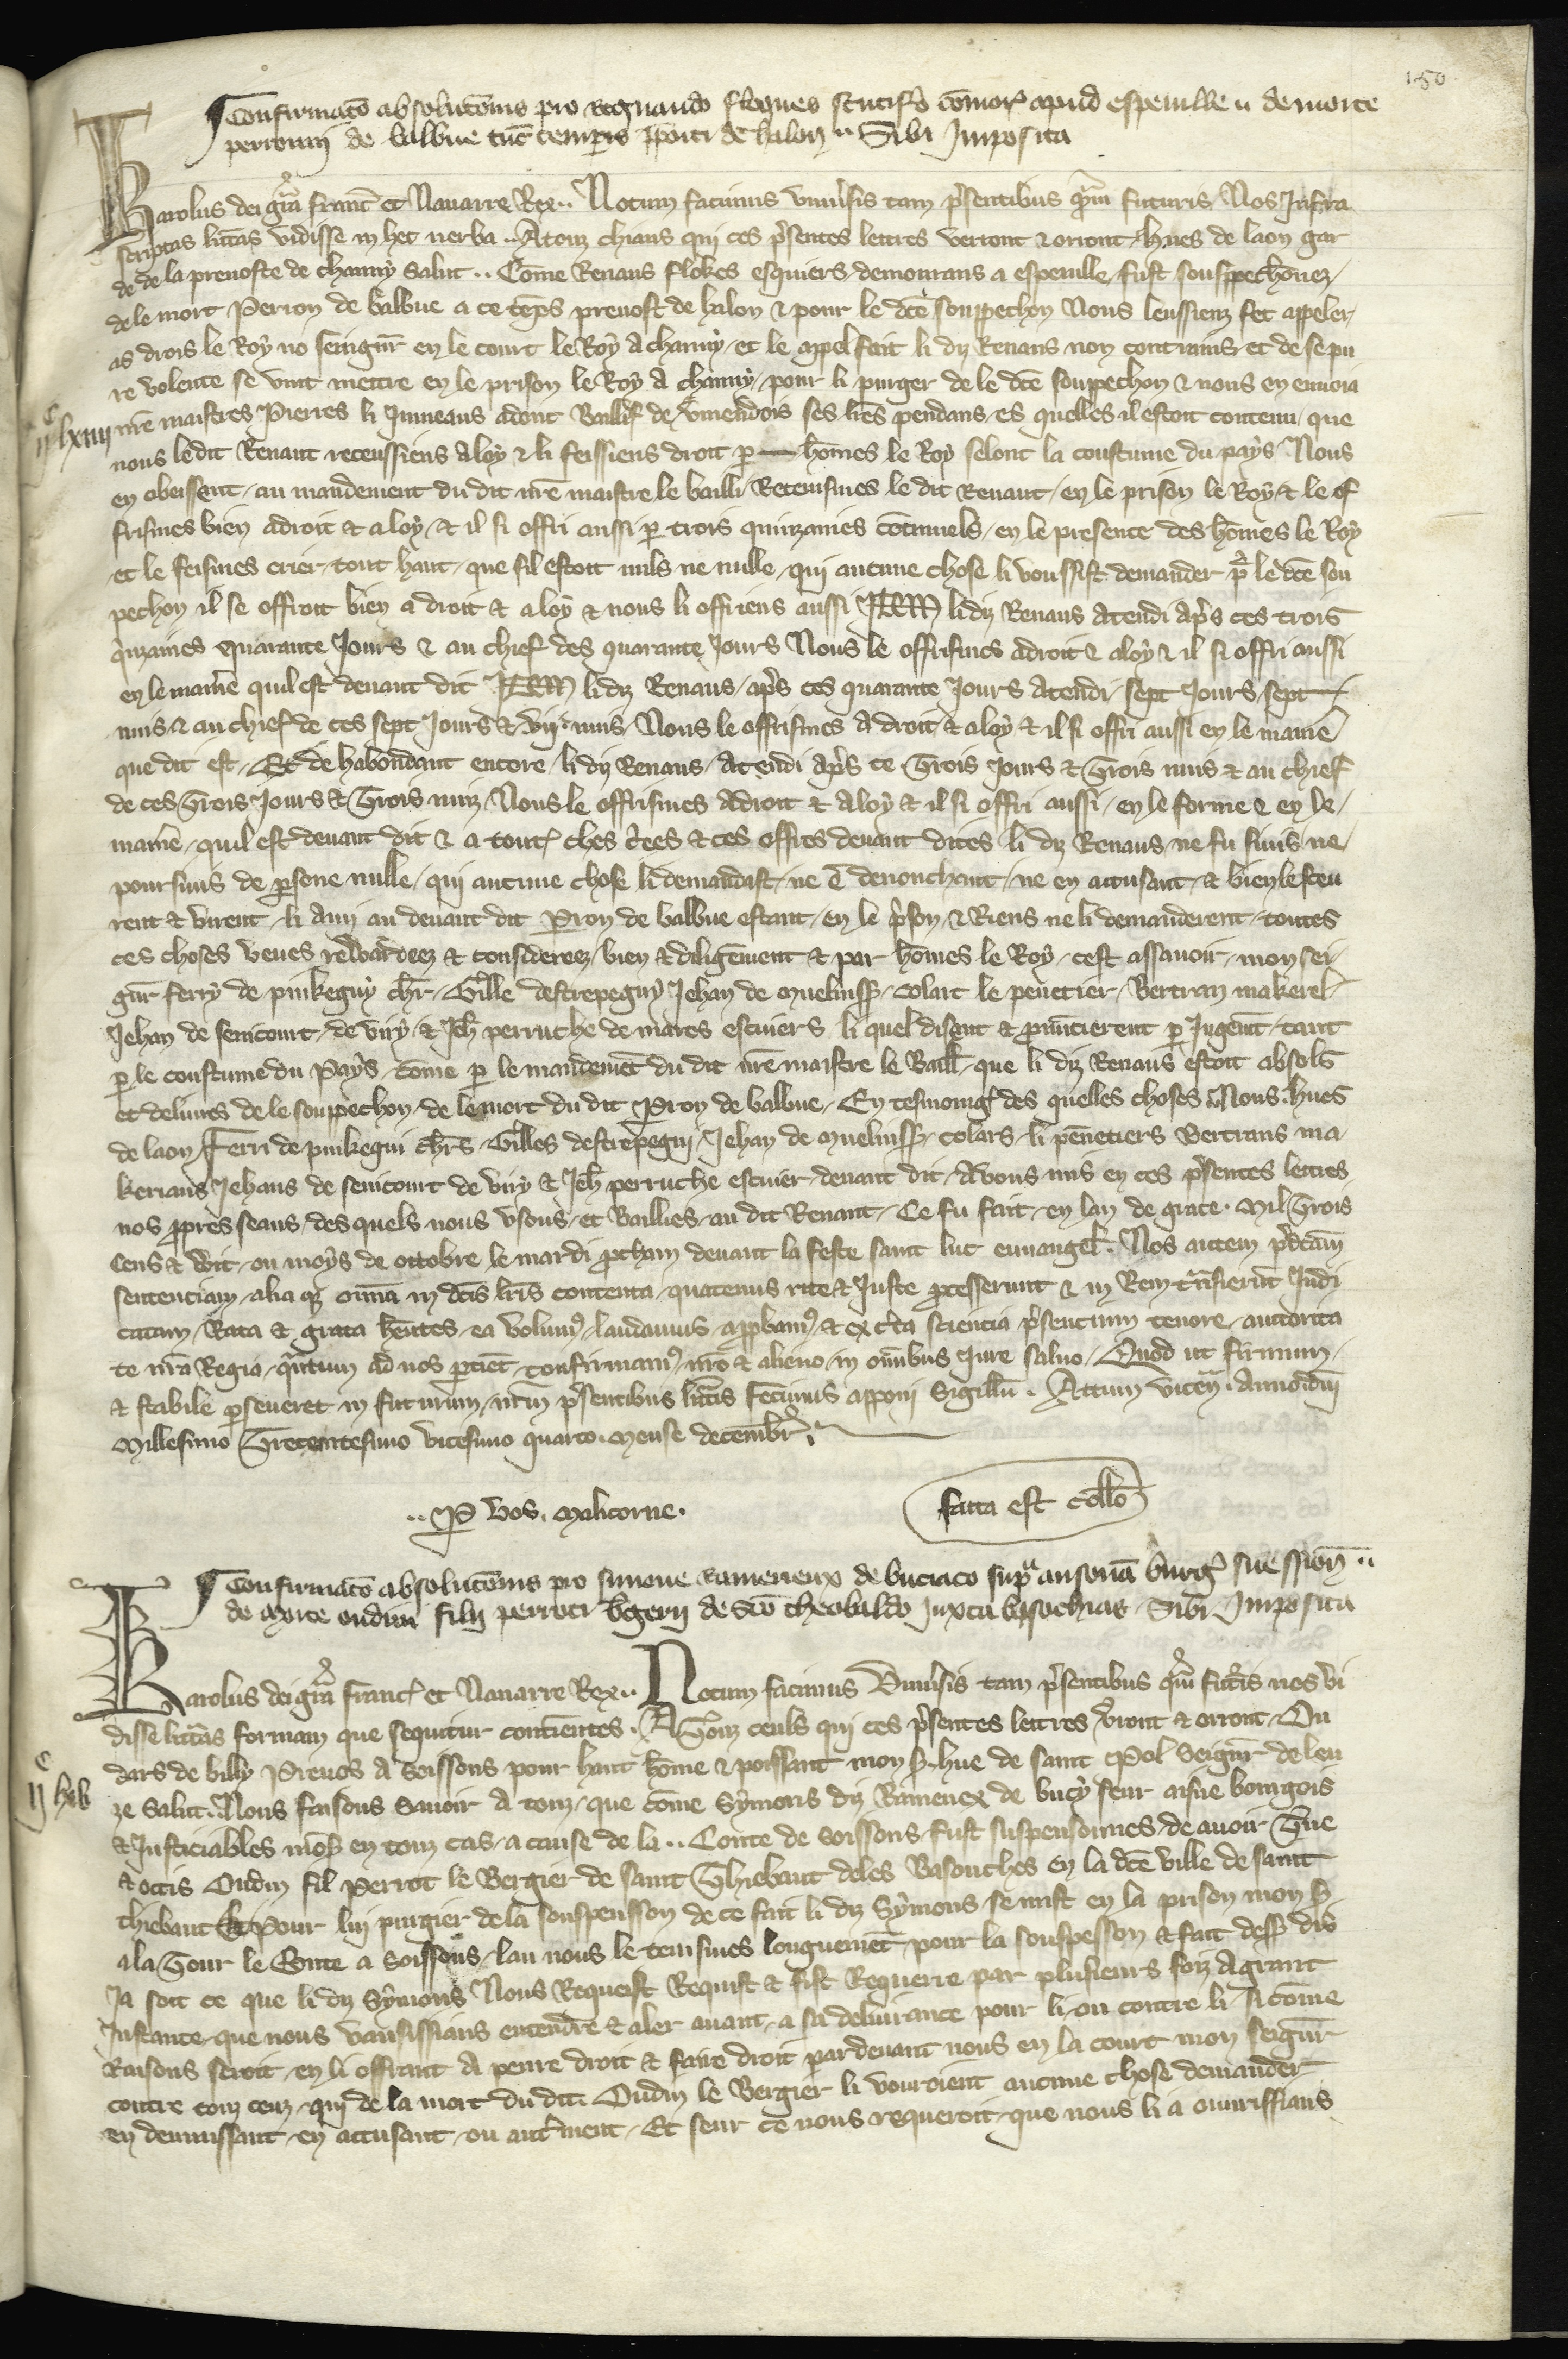 150
Confirmac̄o absolucōnis pro regnaudo floques scutif͛o cōmor͛ apud espeuille .. de morte
perroni de balbue tūc temp̄is p̄po͛iti de halon .. Sibi Imposita
Karolus dei gr̄a franc̄ et Nauarre Rex .. Notum facimus vniu͛sis tam p͛sentibus q̄m futuris Nos Infra
scriptas litt͛as vidisse in hec uerba .. A touz chiaus qui ces p͛sentes lettres verront & orront hues de laon gar
de de la preuoste de chauny salut .. Cōme Renaus flokes esquiers demourans a espeuille fust souspechōnez
de le mort Perron de balbue a ce tēps preuost de halon & pour le dc̄e souppechon Nous leussienz fet appeler
as drois le Roy no seingn̄r en le court le Roy a chauny et le apel fait li diz Renaus non contrains et de se pu
re volente se vint mettre en le prison le Roy a chauny pour li purger de le dc̄e souppechon & nous en enuoia
ijᶜ lxiiij
mr̄e maistres Pierres li Jumeaus adont Baillif de v͛mendois ses lr̄es pendans es quelles il estoit contenu que
nous ledit Renaut receussiens a loy & li feissiens droit p̱ hōmes le Roy selonc la coustume du pays Nous
en obeissent au mandement du dit mr̄e maistre le bailli Receusmes le dit Renaut en le prison le Roy & le of
frismes bien a droit et a loy & il si offri aussi p̱ trois quinzaines cōtinuels en le presence des hōmes le Roy
et le feismes crier tout haut que sil estoit nuls ne nulle qui aucune chose li voussist demander p͛ le dc̄e sou
pechon il se offroit bien a droit & a loy & nous li offriens aussi ITEM li diz Renaus atendi ap͛s ces trois
q͛nzaines quarante Jours & au chief des quarante Jours Nous le offrismes a droit & a loy & il si offri aussi
en le maniē quil est deuant dit ITEM li diz Renaus ap͛s ces quarante Jours atendi sept Jours sept
nuis & au chief de ces sept Jours & vij nuis Nous le offrismes a droit & a loy & il si offri aussi en le maniē
que dit est Et de habondant encore li diz Renaus atendi ap͛s ce Trois Jours & Trois nuis & au chief
de ces Trois Jours & Trois nuiz Nous le offrismes a droit & a loy & il si offri aussi en le forme & en le
maniē quil est deuant dit & a tout͛ ches c͛ees & ces offres deuant dites li diz Renaus ne fu suiuis ne
poursuis de p̱sone nulle qui aucune chose li demandast ne ē denonchant ne en accusant & bien le sceu
rent & virent li ami au deuant dit P̱ron de balbue estant en le p͛son & Riens ne li demanderent toutes
ces choses veues rewardeez & considereez bien & diligēment & par hōmes le Roy cest assauoir mon sei
gn̄r ferry de pinkegny ch͛r Gille destrepegny Jehan de muelniss colart le penetier Bertran makerel
Jehan de senicourt de viry & Jeh̄ perruche de mares escuiers li quel disent & p̱nūcierent p̱ Jugēnt tant
p̱ le coustume du Pays cōme p̱ le mandemēt du dit mr̄e maistre le Baill̄ que li diz Renaus estoit absols
et deliures de le souppechon de le mort du dit P̱ron de balbue En tesmoing͛ des quelles choses Nous hues
de laon Ferri de pinkegni ch͛rs Gilles destrepegni Jehan de muelniss colars li pēnetiers Bertrans ma
kerians Jehans de senicourt de viry & Jeh̄ perruche escuier deuant dit Auons mis en ces p͛sentes lettres
nos p̱pres seaus des quels nous vsons et Baillies au dit Renaut Ce fu fait en lan de grace mil Trois
Cens & wit ou moys de ottobre le mardi p̱cham deuant la feste saint luc euuangel̄ Nos autem p͛dc̄am
sentenciam alia q̱ ōnia in dc̄is lr̄is contenta quatenus rite & Juste p̱cesserunt & in Rem tr͛nsierūt Judi
catam Rata & grata hēntes ea volum͛ laudamus app̱bam͛ & ex c͛ta sciencia p͛sencium tenore auctorita
te nr̄a Regia q͛ntum ad nos p̱tinet confirmam͛ nr̄o & alieno in ōnibus Jure saluo Quod ut firmum
& stabile p̱seueret in futurum nr̄m p͛sentibus litt͛is fecimus apponi Sigillū Actum vicen͛ Anno dn̄i
Millesimo Trecentesimo vicesimo quarto mense decembr͛
.. P̱ vos . Malicorne .
facta est collo͞
Confirmac̄o absolucōnis pro simone ramerieux de buciaco sup͛ ansonā burg͛ suession̄ ..
de morte oudini filij perroti b͛gerij de sc̄o theobaldo Juxta basochias Sibi Imposita
Karolus dei gr̄a franc͛ et Nauarre Rex .. Notum facimus Vniu͛sis tam p͛sentibus q͛m fut͛is nos vi
disse litt͛as formam que sequitur contiēntes . A Touz ceuls qui ces p͛sentes lettres v͛ront & orront Ou
dars de billy Preuos a Soissons pour haut hōme & poissant mon s͛ hue de saint Pol Seign̄r de leu
ijᶜ lxv
ze salut Nous faisons sauoir a touz que cōme Symons diz Rameriex de bucy seur aisne bourgois
& Justiciables mōs͛ en touz cas a cause de la .. Conte de soissons fust suspensonnes de auoir Tue
& occis Oudin fil Perrot le Bergier de saint Thiebaut deles Basouches en la dc̄e ville de saint
thiebaut Et Pour lui purgier de la souspensson de ce fait li diz Symons se mist en la prison mon s͛
a la Tour le Conte a Soissons lau nous le tenismes longuemēt pour la souspesson & fait dess͛ dis
Ja soit ce que li diz Symons Nous Requeist Requist & fist Requerre par plusieurs foiz a grant
Instance que nous vausissians entendre & aler auant a sa deliurance pour li ou contre li si cōme
Raisons seroit en li offrant a penre droit & faire droit pardeuant nous en la court mon seign̄r
contre touz ceuz qui de la mort du dit Oudin le Bergier li vouroient aucune chose demander
en denunssant en accusant ou aut͛ment Et seur ce nous requeroit que nous li a ouurissians